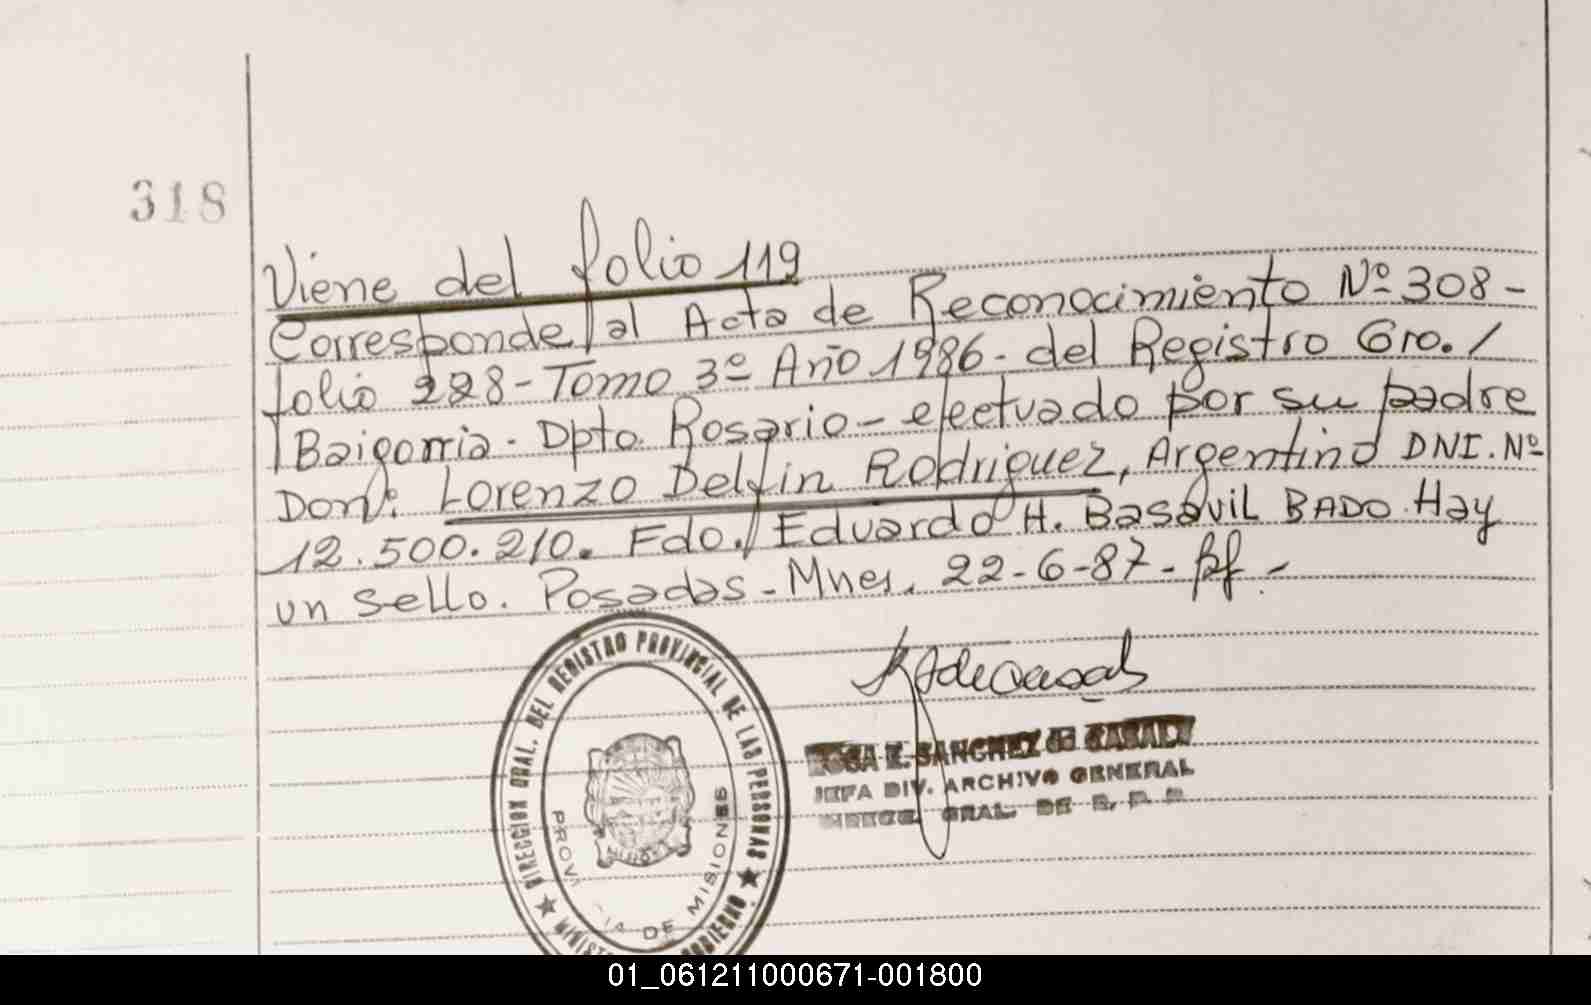 318
Viene del folio 119
Corresponde al Acta de Reconocimiento Nº 308-
folio 228- Tomo 3º Año 1986- del Registro Gro./
Baigorria- Dpto. Rosario- efectuado por su padre
Don: Lorenzo Delfin Rodriguez, Argentino DNI. Nº
12.500.210. Fdo./ Eduardo H. Basavil BADO. Hay
un sello. Posadas- Mnes. 22-6-87-
DIRECCION GRAL. DEL REGISTRO PROVINCIAL DE LAS PERSONAS
PROVI IA DE MISIONES
MINIST GOBIERNO
SANCHEZ DE
JEFA DIV. ARCHIVO GENERAL
GRAL. DE R. P. P.
01_061211000671-001800